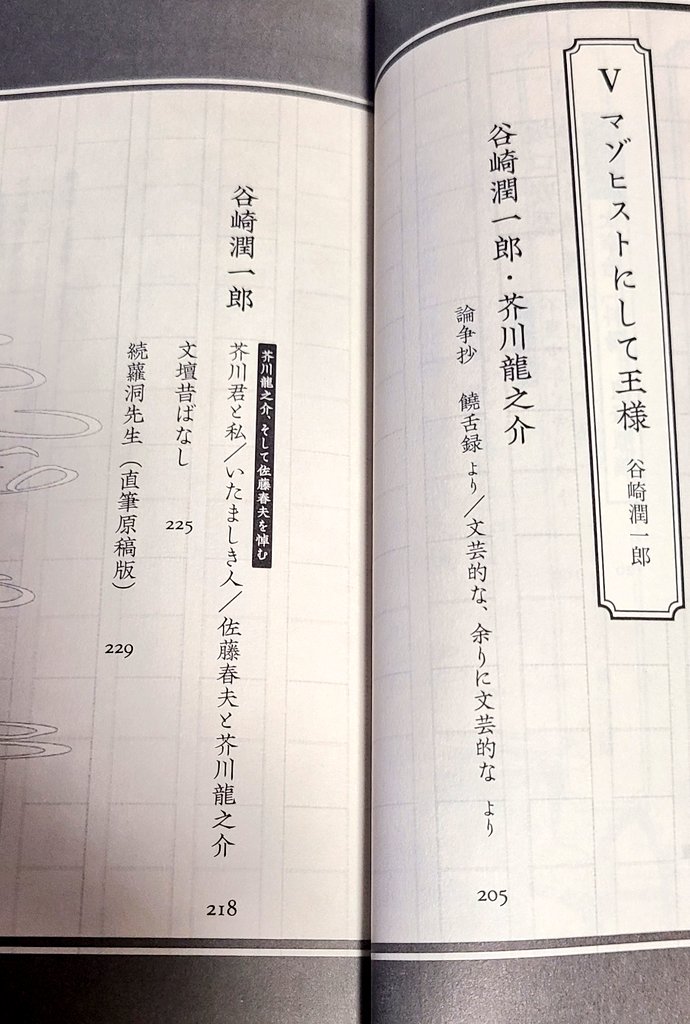 V マゾヒストにして王様 谷崎潤一郎
谷崎潤一郎・芥川龍之介
論争抄 饒舌録 より／文芸的な、余りに文芸的な より
205
谷崎潤一郎
芥川龍之介、そして佐藤春夫を悼む
芥川君と私／いたましき人／佐藤春夫と芥川龍之介
218
文壇昔ばなし
225
続蘿洞先生（直筆原稿版）
229